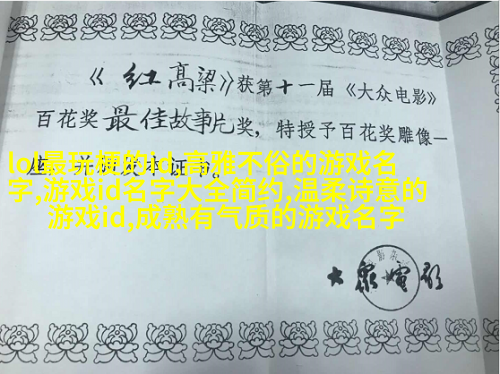 《红高粱》获第十一届《大众电影》
百花奖最佳故事片奖，特授予百花奖雕像一
座，并颁发本证书。
lol最玩梗的id,高雅不俗的游戏名
字,游戏id名字大全简约,温柔诗意的
游戏id,成熟有气质的游戏名字
大众电影